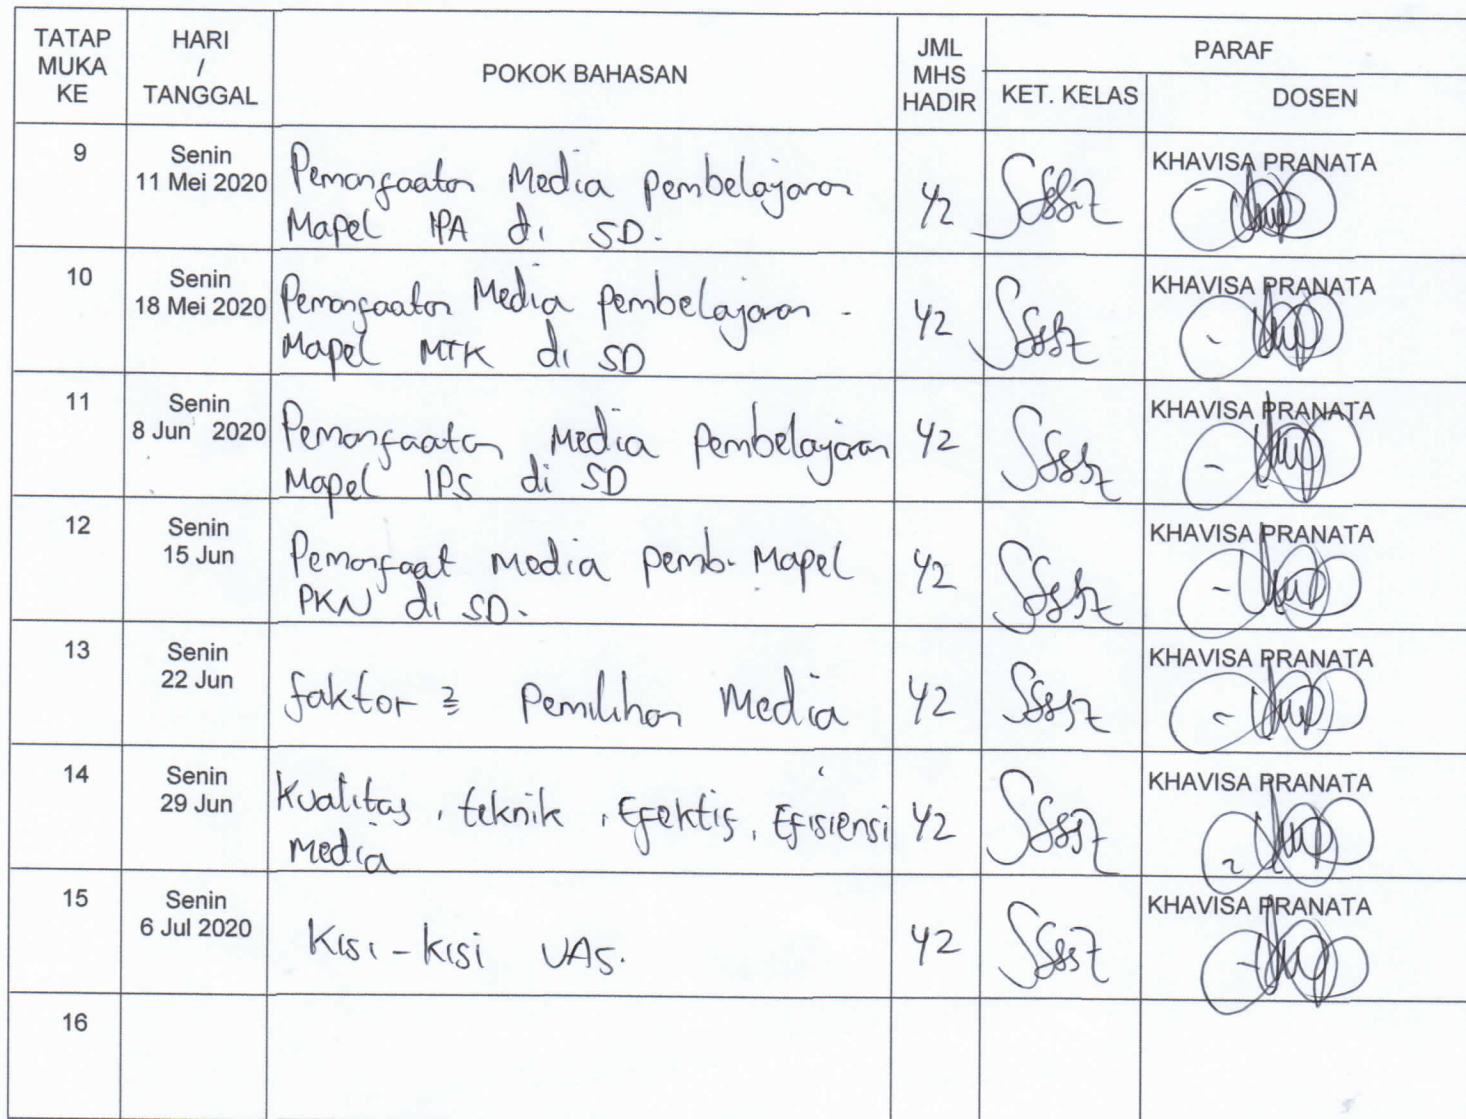 TATAP MUKA KE
HARI / TANGGAL
POKOK BAHASAN
JML MHS HADIR
PARAF
KET. KELAS
DOSEN
9
Senin
11 Mei 2020
Pemanfaatan Media Pembelajaran
Mapel IPA di SD.
42
KHAVISA PRANATA
10
Senin
18 Mei 2020
Pemanfaatan Media Pembelajaran -
Mapel MTK di SD
42
KHAVISA PRANATA
11
Senin
8 Jun 2020
Pemanfaatan Media Pembelajaran
Mapel IPS di SD
42
KHAVISA PRANATA
12
Senin
15 Jun
Pemanfaat media pemb. Mapel
PKN di SD.
42
KHAVISA PRANATA
13
Senin
22 Jun
faktor 2 Pemilihan Media
42
KHAVISA PRANATA
14
Senin
29 Jun
Kualitas, teknik, Efektif, Efisiensi
Media
42
KHAVISA PRANATA
15
Senin
6 Jul 2020
Kisi-kisi UAS.
42
KHAVISA PRANATA
16